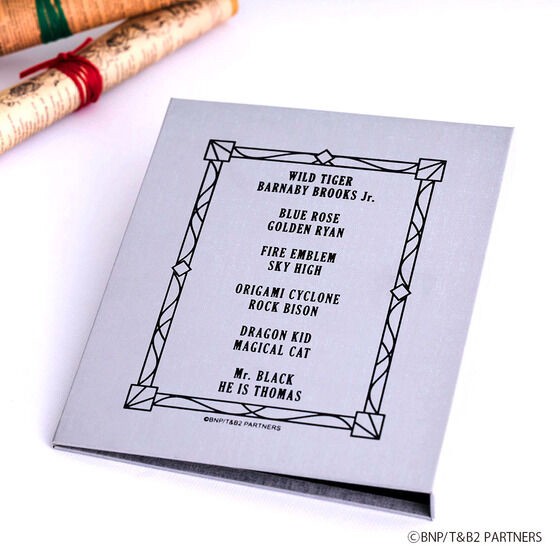 WILD TIGER
BARNABY BROOKS Jr.
BLUE ROSE
GOLDEN RYAN
FIRE EMBLEM
SKY HIGH
ORIGAMI CYCLONE
ROCK BISON
DRAGON KID
MAGICAL CAT
Mr. BLACK
HE IS THOMAS
©BNP/T&B2 PARTNERS
©BNP/T&B2 PARTNERS